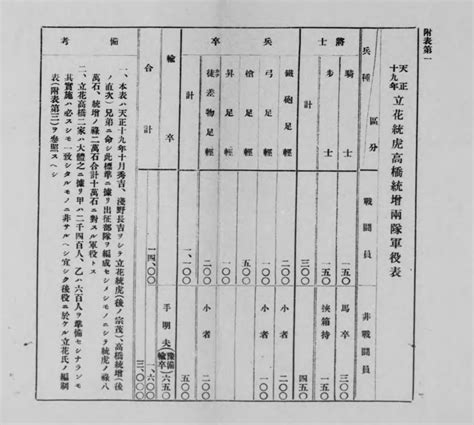 附表第一
天正十九年 立花統虎高橋統增兩隊軍役表
兵種 區分 戰鬪員 非戰鬪員
將士 騎士 一五〇 馬卒 三〇〇
步士 一五〇 挾箱持 一五〇
計 三〇〇
兵卒 鐵砲足輕 二〇〇 小者 一〇〇
弓足輕 一〇〇
槍足輕 五〇〇
昇足輕 一〇〇
徒差物足輕 二〇〇 小者 二〇〇
計 一、一〇〇 五〇〇
輸卒 手明夫(豫備輸卒) 六五〇
合計 一四、〇〇 一、六〇〇 三、〇〇〇
備考
一、本表ハ天正十九年十月秀吉、淺野長吉ヲシテ立花統虎(後ノ宗茂)、高橋統增(後
ノ直次)兄弟ニ命シ此標準ニ據リ出征部隊ヲ編成セシメシモノニシテ統虎ノ祿八
萬石、統增ノ祿二萬石合計十萬石ニ對スル軍役トス
二、立花高橋二家ハ大體之ニ據リ甲ハ二千四百人、乙ハ六百人ヲ準備セシナランモ
其實施ハ必スシモ一致シタルモノニ非サルヘシ宜シク後役ニ於ケル立花氏ノ編制
表(附表第三)ヲ參照スヘシ